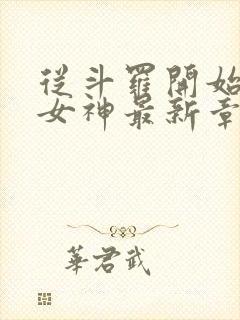 從斗羅開始
女神最新章
華君武